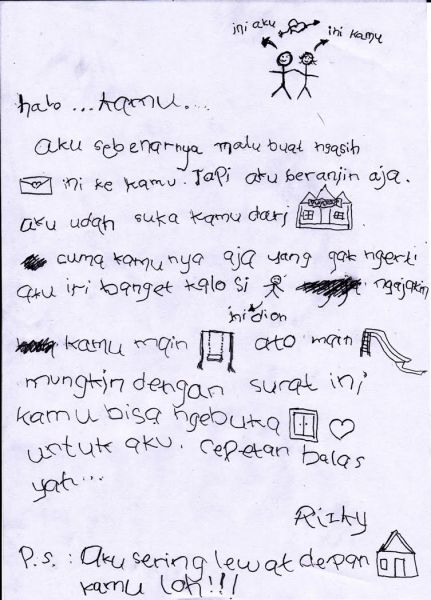 ini aku
ini kamu
halo ...kamu...
aku sebenarnya malu buat ngasih
ini ke kamu. Tapi aku beranjin aja.
aku udah suka kamu dari
cuma kamunya aja yang gak ngerti
aku iri banget kalo si ngajakin
ini dion
kamu main ato main
mungkin dengan surat ini
kamu bisa ngebuka
untuk aku. cepetan balas
yah...
Rizky
P.s. : Aku sering lewat depan
kamu loh!!!